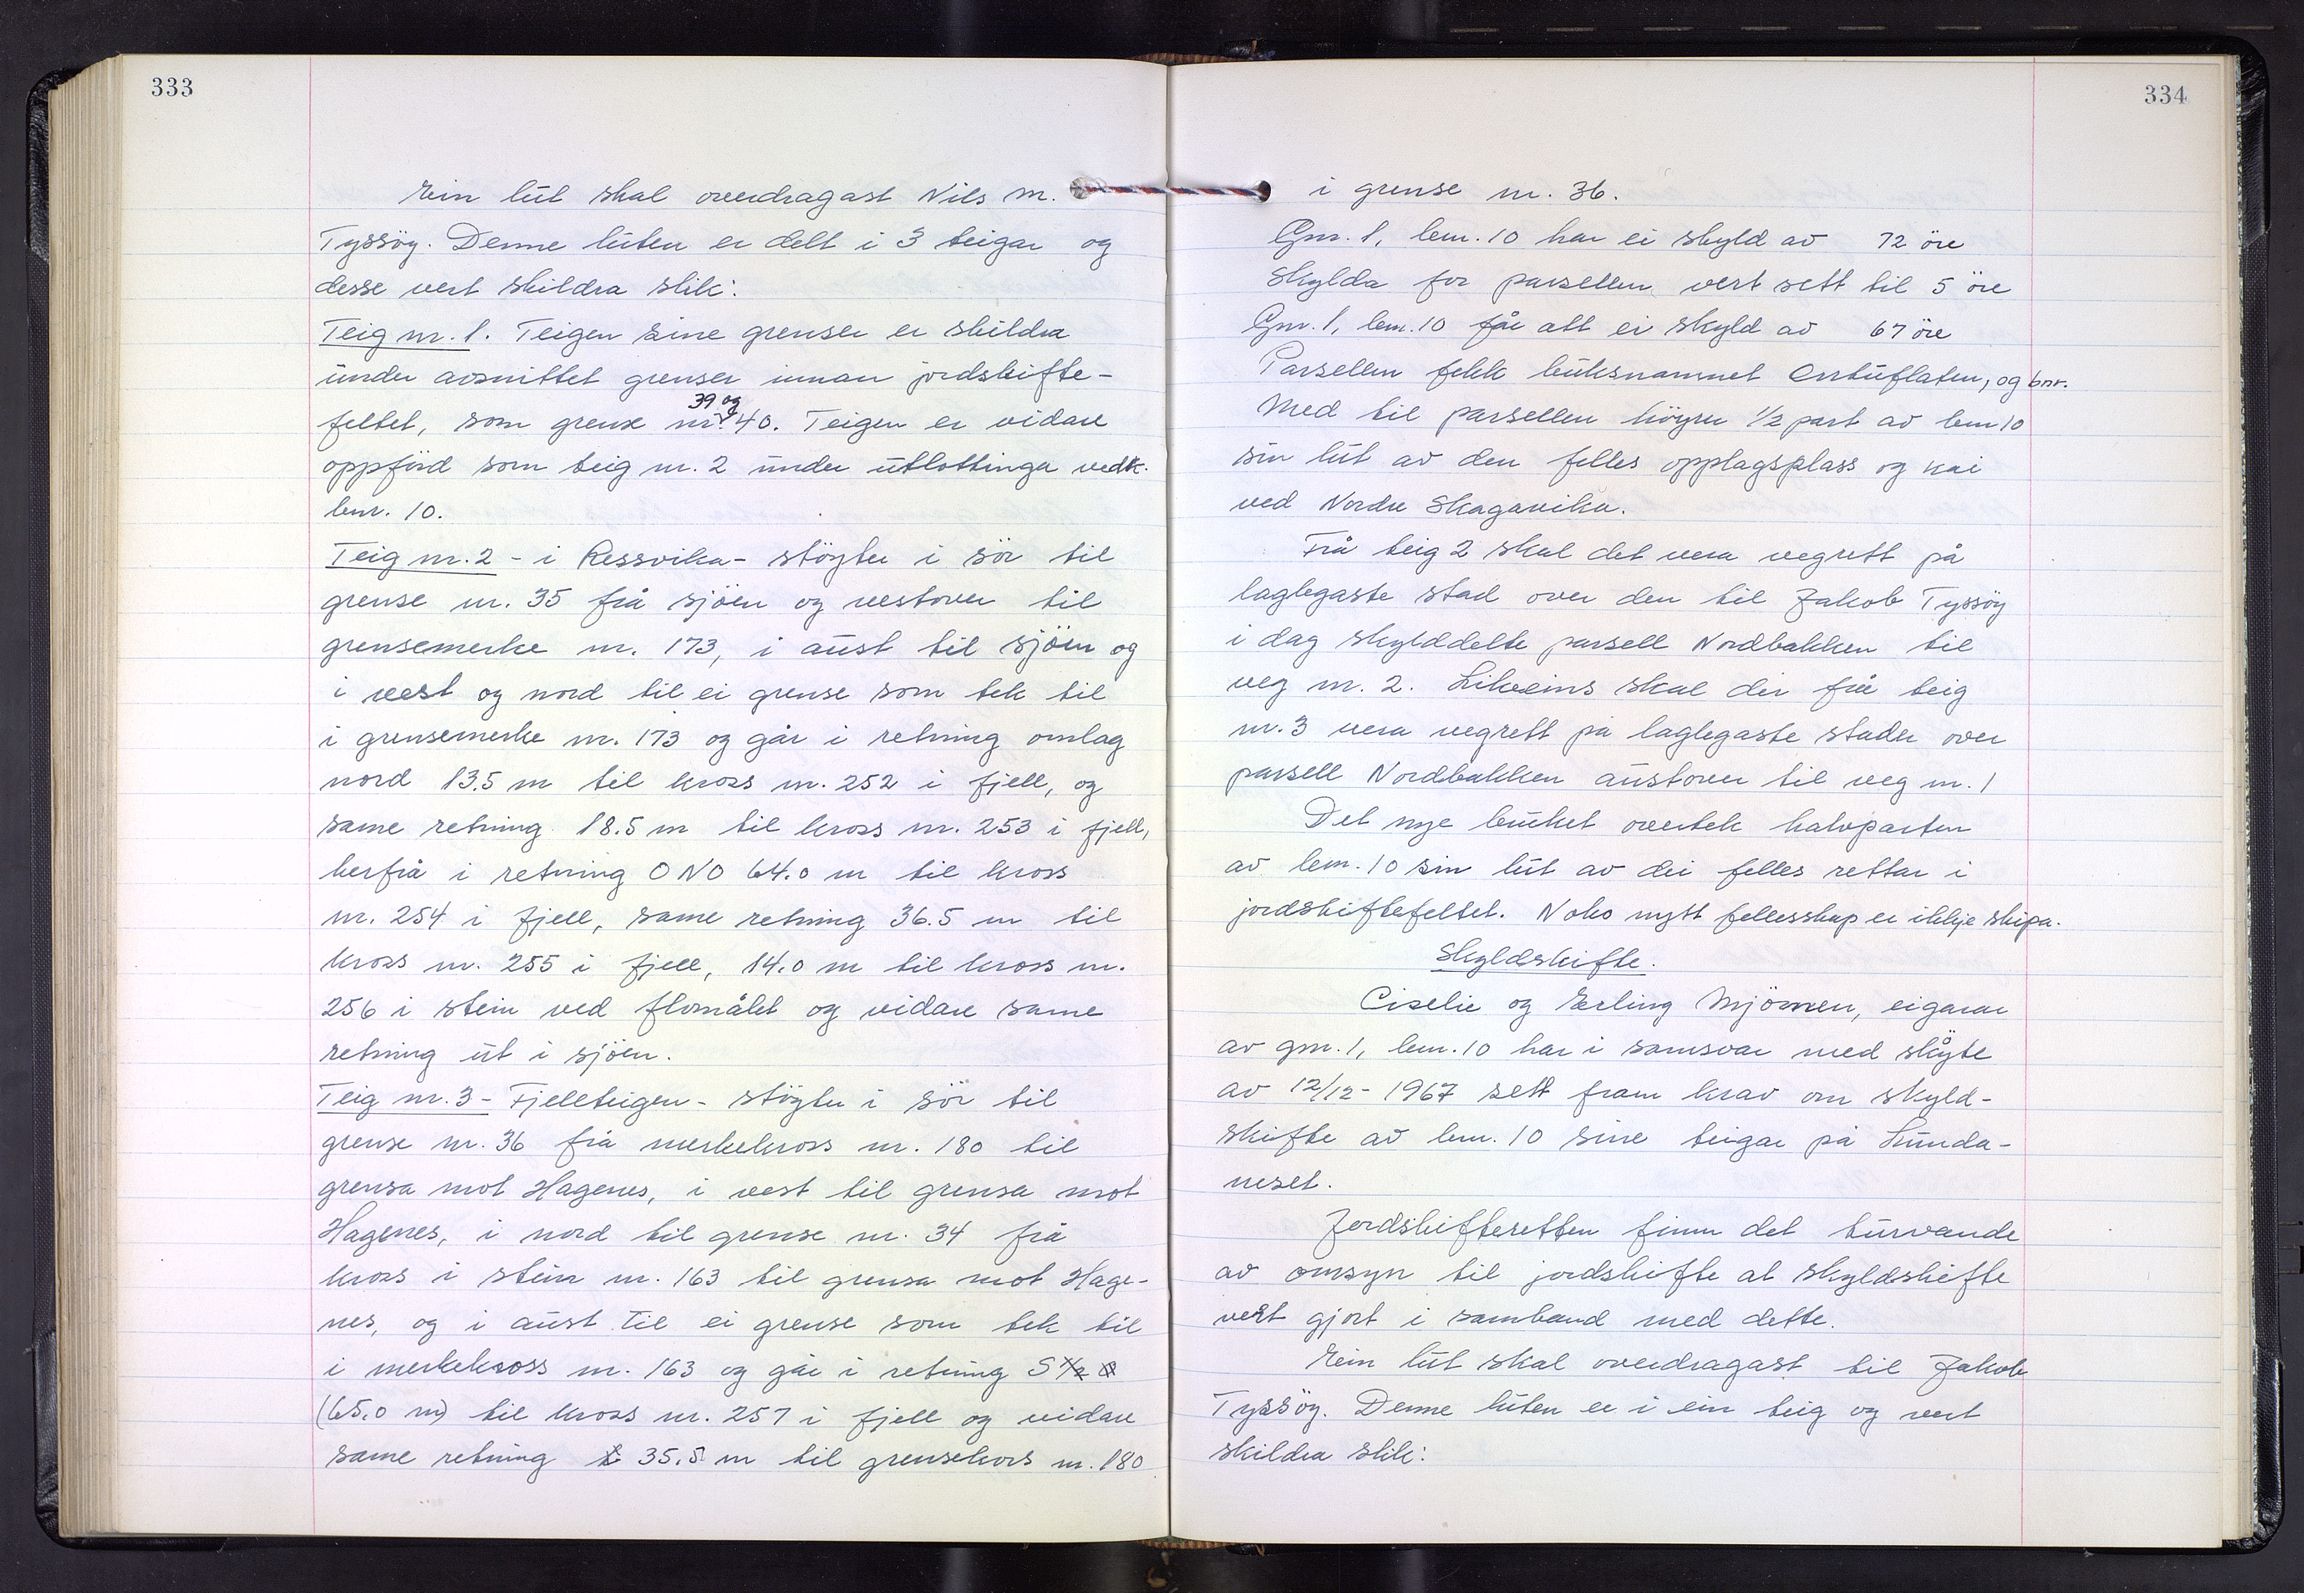 333
Ein lut skal overdragast Nils M.
Tyssöy. Denne luten er delt i 3 teigar og
desse vert skildra slik:
Teig nr. 1. Teigen sine grenser er skildra
under avsnittet grenser innan jordskifte-
39 og
feltet, som grense nr. 40. Teigen er vidare
oppförd som teig nr. 2 under utlottinga vedk.
bnr. 10.
Teig nr. 2 - i Ressvika - stöyter i sör til
grense nr. 35 frå sjöen og vestover til
grensemerke nr. 173, i aust til sjöen og
i vest og nord til ei grense som tek til
i grensemerke nr. 173 og går i retning omlag
nord 13.5 m til kross nr. 252 i fjell, og
same retning 18.5 m til kross nr. 253 i fjell,
herfrå i retning ONO 64.0 m til kross
nr. 254 i fjell, same retning 36.5 m til
kross nr. 255 i fjell, 14.0 m til kross nr.
256 i stein ved flomålet og vidare same
retning ut i sjöen.
Teig nr. 3 - Fjellteigen - stöyter i sör til
grense nr. 36 frå merkekross nr. 180 til
grensa mot Hagenes, i vest til grensa mot
Hagenes, i nord til grense nr. 34 frå
kross i stein nr. 163 til grensa mot Hage-
nes, og i aust til ei grense som tek til
i merkekross nr. 163 og går i retning S
(65.0 m) til kross nr. 257 i fjell og vidare
same retning 35.5 m til grensekors nr. 180
334
i grense nr. 36.
Gnr. 1, bnr. 10 har ei skyld av 72 öre
Skylda for parsellen vert sett til 5 öre
Gnr. 1, bnr. 10 får att ei skyld av 67 öre
Parsellen fekk bruksnamnet Orrtuflaten, og bnr.
Med til parsellen höyrer 1/2 part av bnr 10
sin lut av den felles opplagsplass og kai
ved Nordre Skagavika.
Frå teig 2 skal det vera vegrett på
laglegaste stad over den til Jakob Tyssöy
i dag skylddelte parsell Nordbakken til
veg nr. 2. Likeeins skal der frå teig
nr. 3 vera vegrett på laglegaste stader over
parsell Nordbakken austover til veg nr. 1
Det nye bruket overtek halvparten
av bnr. 10 sin lut av dei felles rettar i
jordskiftefeltet. Noko nytt fellesskap er ikkje skipa.
Skyldskifte.
Ciselie og Erling Mjömen, eigarar
av gnr. 1, bnr. 10 har i samsvar med sköyte
av 12/12 - 1967 sett fram krav om skyld-
skifte av bnr. 10 sine teigar på Lunda-
neset.
Jordskifteretten finn det turvande
av omsyn til jordskifte at skyldskifte
vert gjort i samband med dette.
Ein lut skal overdragast til Jakob
Tyssöy. Denne luten er i ein teig og vert
skildra slik: